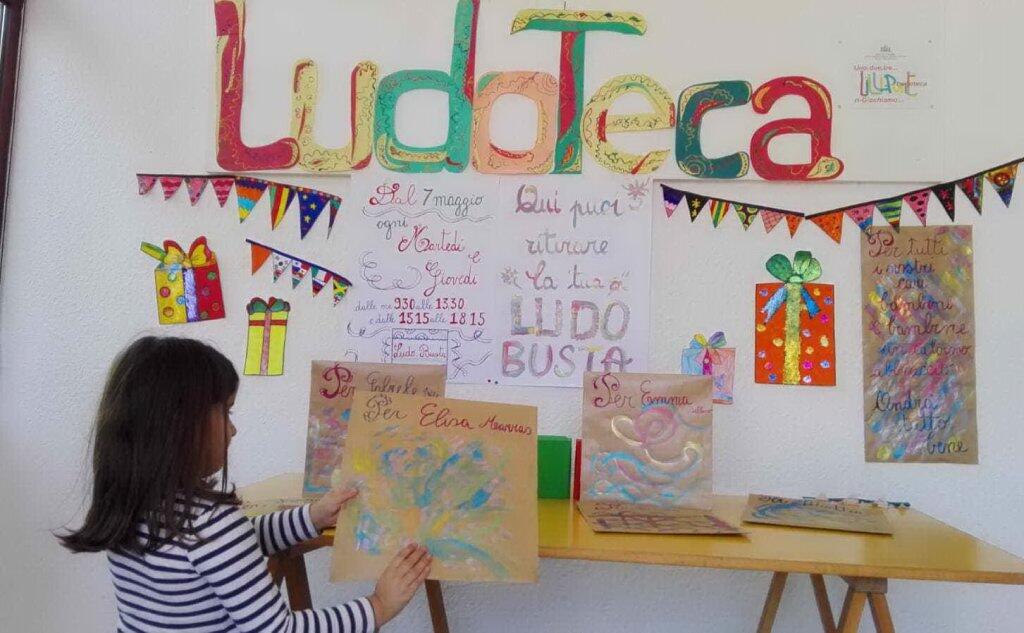 LudoTeca
Una, due, tre...
LILLIPUT
Ludoteca
ri-Giochiamo...
Dal 7 maggio
ogni
Martedì e
Giovedì
dalle ore 930 alle 1330
e dalle 1515 alle 1815
Ludo Busta
Qui puoi
ritirare
la tua
LUDO
BUSTA
Per tutti
i nostri
cari
bambini
e bambine
un ritorno
Andrà
tutto
bene
Per Gabriele
Per Elisa
Per Emma